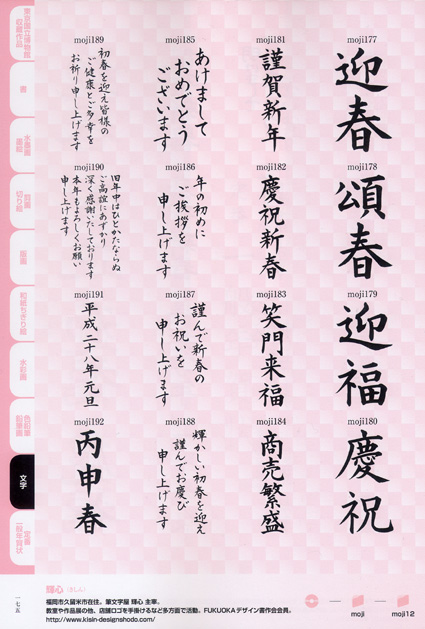 moji177
迎春
moji178
頌春
moji179
迎福
moji180
慶祝
moji181
謹賀新年
moji182
慶祝新春
moji183
笑門来福
moji184
商売繁盛
moji185
あけまして
おめでとう
ございます
moji186
年の初めに
ご挨拶を
申し上げます
moji187
謹んで新春の
お祝いを
申し上げます
moji188
輝かしい初春を迎え
謹んでお慶び
申し上げます
moji189
初春を迎え皆様の
ご健康とご多幸を
お祈り申し上げます
moji190
旧年中はひとかたならぬ
ご高誼にあずかり
深く感謝いたしております
本年もよろしくお願い
申し上げます
moji191
平成二十八年元旦
moji192
丙申春
東京国立博物館
収蔵作品
書
水墨画
切り絵
版画
和紙ちぎり絵
水彩画
色鉛筆
鉛筆画
文字
定番
一般年賀状
一七五
輝心
福岡市久留米市在住。筆文字屋 輝心 主宰。
教室や作品展の他、店舗ロゴを手掛けるなど多方面で活動。FUKUOKAデザイン書作会会員。
http://www.kisin-designshodo.com/
moji
moji12